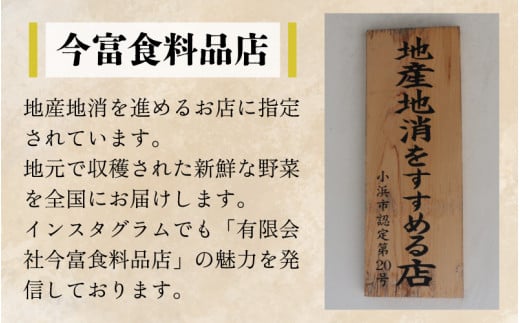 今富食料品店
地産地消を進めるお店に指定
されています。
地元で収穫された新鮮な野菜
を全国にお届けします。
インスタグラムでも「有限会
社今富食料品店」の魅力を発
信しております。
地産地消をすすめる店
小浜市認定第20号